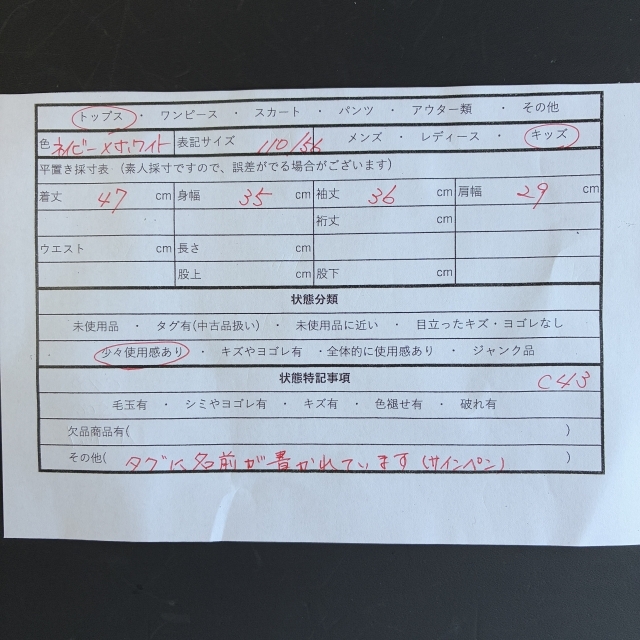 トップス ・ ワンピース ・ スカート ・ パンツ ・ アウター類 ・ その他
色 ネイビー×ホワイト 表記サイズ 110/56 メンズ ・ レディース ・ キッズ
平置き採寸表 (素人採寸ですので、誤差がでる場合がございます)
着丈 47 cm 身幅 35 cm 袖丈 36 cm 肩幅 29 cm
裄丈 cm
ウエスト cm 長さ cm
股上 cm 股下 cm
状態分類
未使用品 ・ タグ有(中古品扱い) ・ 未使用品に近い ・ 目立ったキズ・ヨゴレなし
・ 少々使用感あり ・ キズやヨゴレ有 ・全体的に使用感あり ・ ジャンク品
状態特記事項 C43
毛玉有 ・ シミやヨゴレ有 ・ キズ有 ・ 色褪せ有 ・ 破れ有
欠品商品有( )
その他( タグに名前が書かれています(サインペン) )